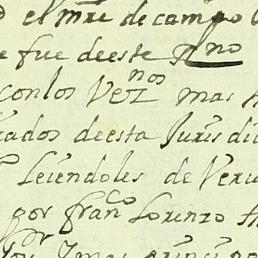 el mre de campo
fue deeste Rno
conlos Veznos mas
cados deesta Juris dic
Leiendoles de Veru
por franco Lorenzo